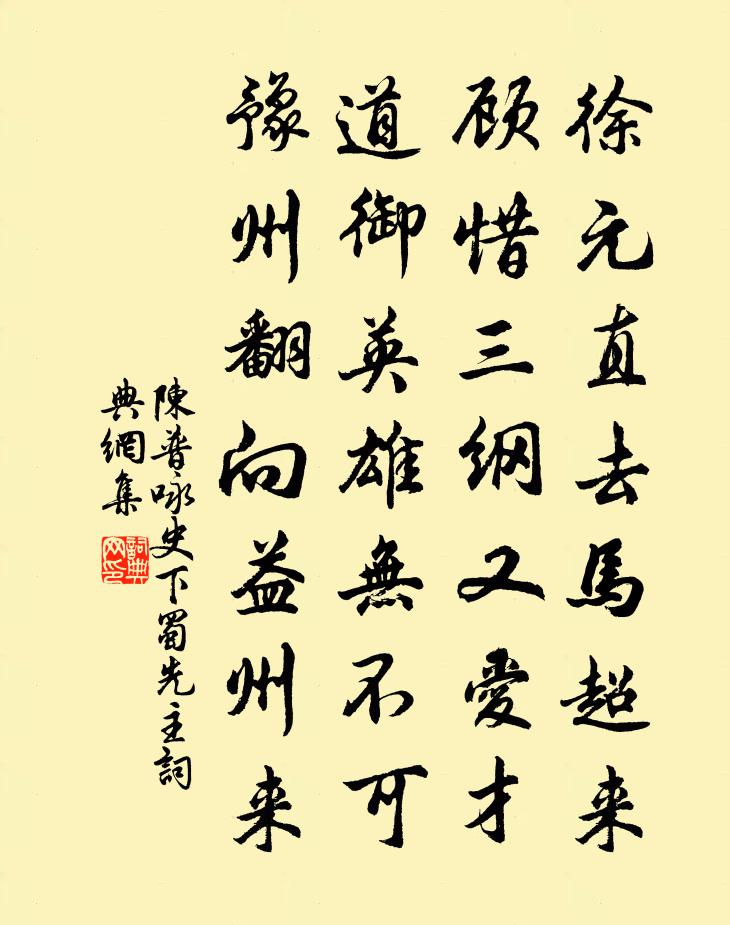 徐元直去馬超来
顾惜三纲又愛才
道御英雄無不可
豫州翻向益州来
陳普咏史下蜀先主詞
典網集
詞典
网印